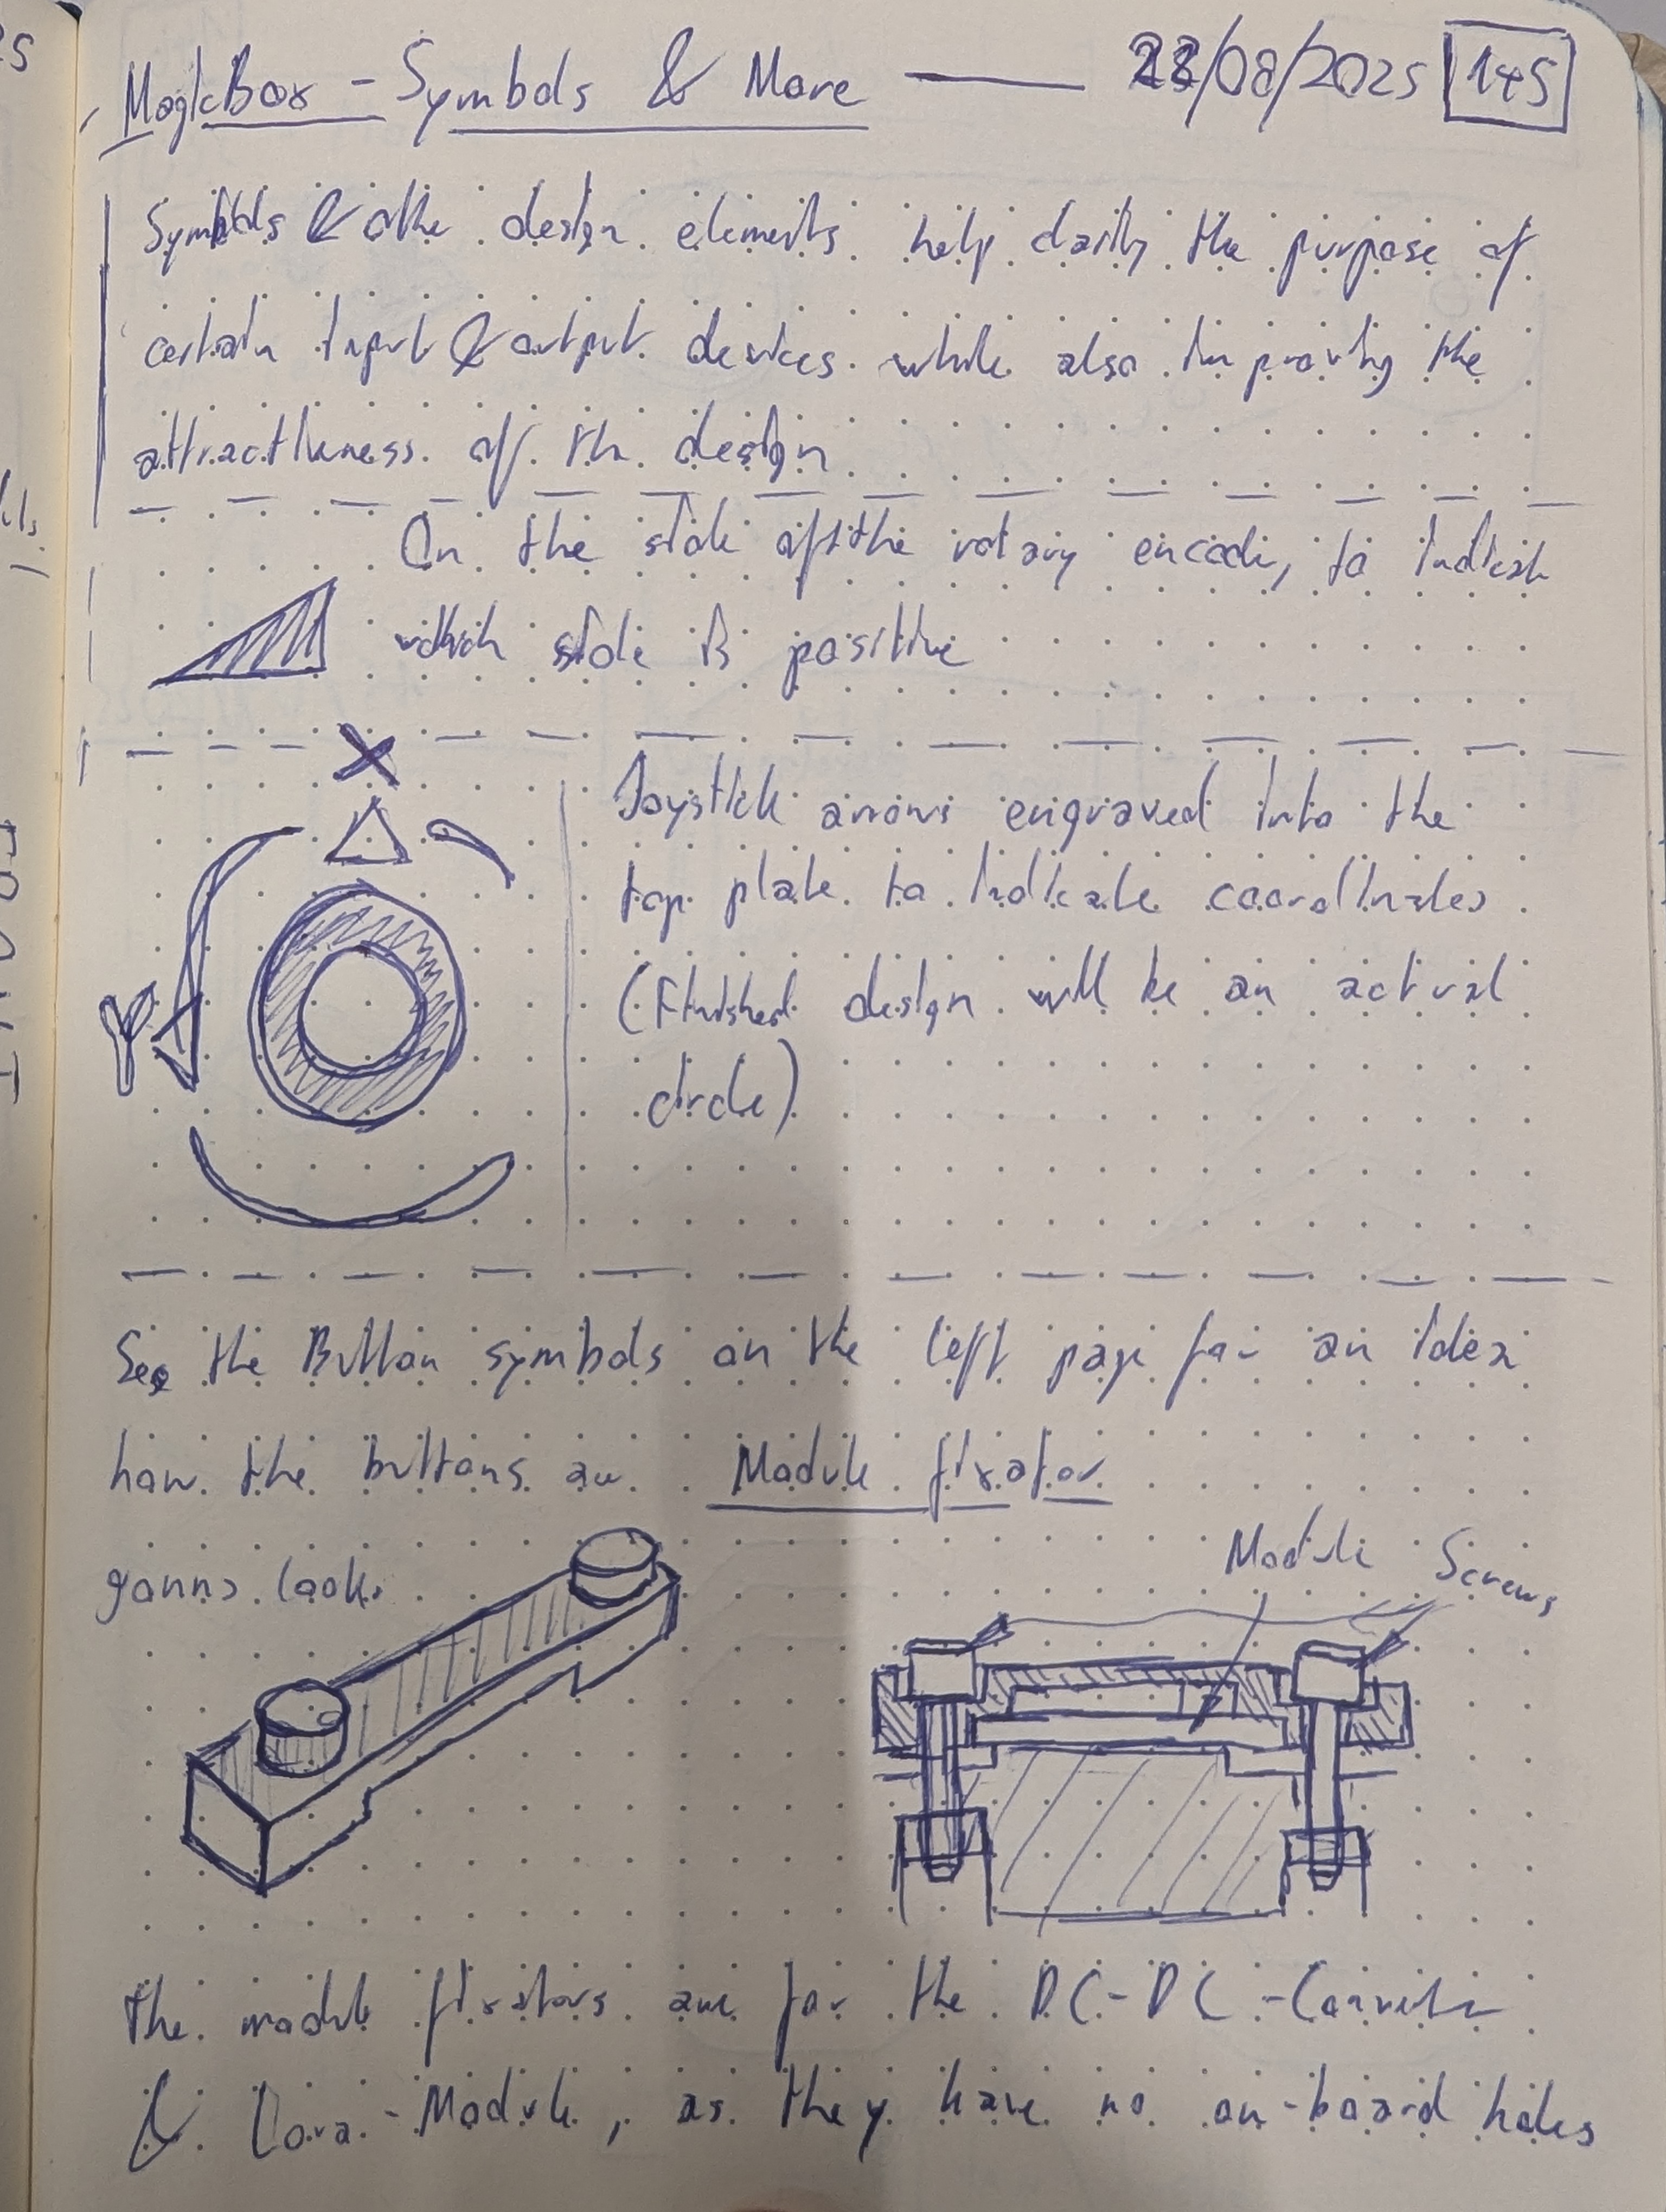 MagicBox - Symbols & More — 22/08/2025 145
Symbols & othe design elements help clarify the purpose of
certain input & output devices while also improving the
attractiveness of the design
On the side of the rotary encoder, to indicate
which side is positive
X
Y
Joystick arrows engraved into the
top plate to indicate coordinates
(Finished design will be an actual
circle)
See the Button symbols on the left page for an idea
how the buttons are
gonna look.
Module fixator
Module Screws
The module fixators are for the DC-DC-Converter
& Lora-Module, as they have no on-board holes